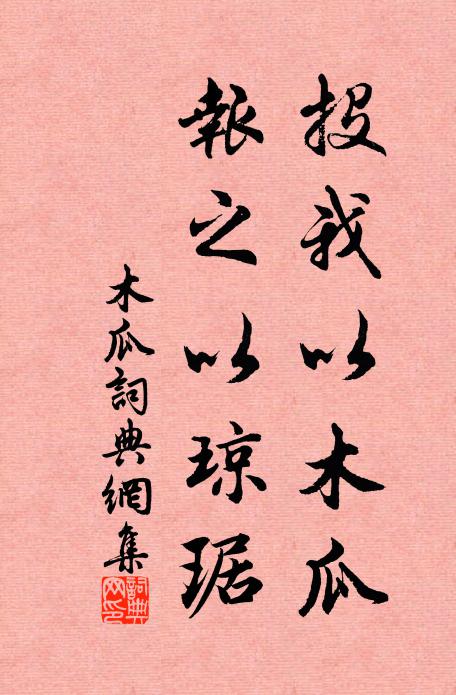 投我以木瓜
報之以琼琚
木瓜詞典網集
詞典
网印